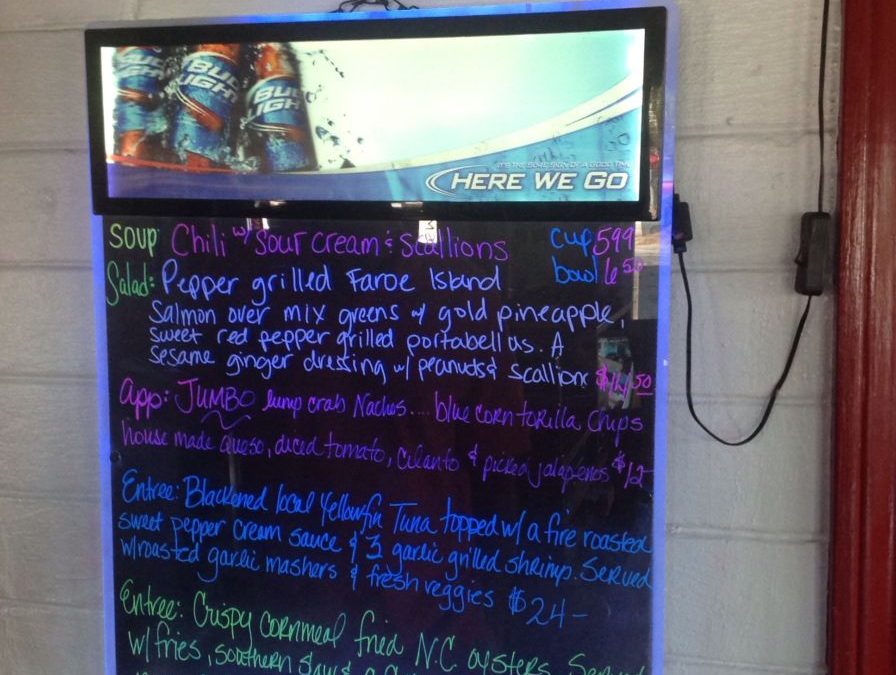 BUD LIGHT
BUD LIGHT
BUD LIGHT
IT'S THE SURE SIGN OF A GOOD TIME
HERE WE GO
Soup Chili w/ Sour cream & Scallions cup 5.99
bowl 6.50
Salad: Pepper grilled Faroe Island
Salmon over mix greens w/ gold pineapple,
sweet red pepper grilled portabellas. A
Sesame ginger dressing w/ peanuds & scallions $14.50
App: JUMBO lump crab Nachos.... blue corn torilla chips
house made queso, diced tomato, cilanto & picked jalapenos $12-
Entree: Blackened local Yellowfin Tuna topped w/ a fire roasted
sweet pepper cream sauce & 3 garlic grilled shrimp. Served
w/ roasted garlic mashers & fresh veggies $24-
Entree: Crispy cornmeal fried N.C. oysters. Served
w/ fries, southern slaw &